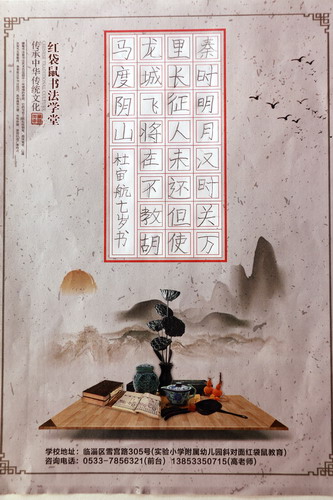 秦时明月汉时关万
里长征人未还但使
龙城飞将在不教胡
马度阴山
杜宙航七岁书
红袋鼠书法学堂
传承中华传统文化
学校地址：临淄区雪宫路305号(实验小学附属幼儿园斜对面红袋鼠教育)
咨询电话：0533-7856321(前台) 13853350715(高老师)